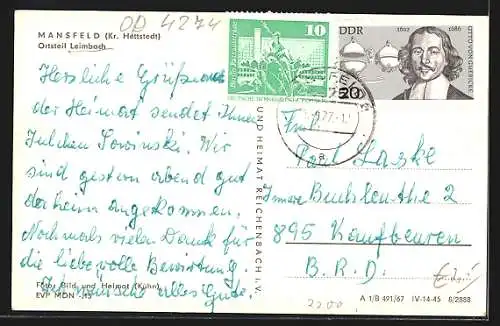 OD 4274
MANSFELD (Kr. Hettstedt)
Ortsteil Leimbach
Herzliche Grüße aus
der Heimat sendet Ihnen
Wir
sind gestern abend gut
daheim angekommen.
Nochmals vielen Dank für
die liebevolle Bewirtung.
Ich wünsche alles Gute.
Foto: Bild und Heimat (Kühn)
EVP MDN -,15
UND HEIMAT REICHENBACH i. V.
10
DDR
1602 1686
OTTO VON GUERICKE
20
Paul Laske
Innere Buchleuthe 2
895 Kaufbeuren
B.R.D.
2200
A 1/B 491/67 IV-14-45 8/2888